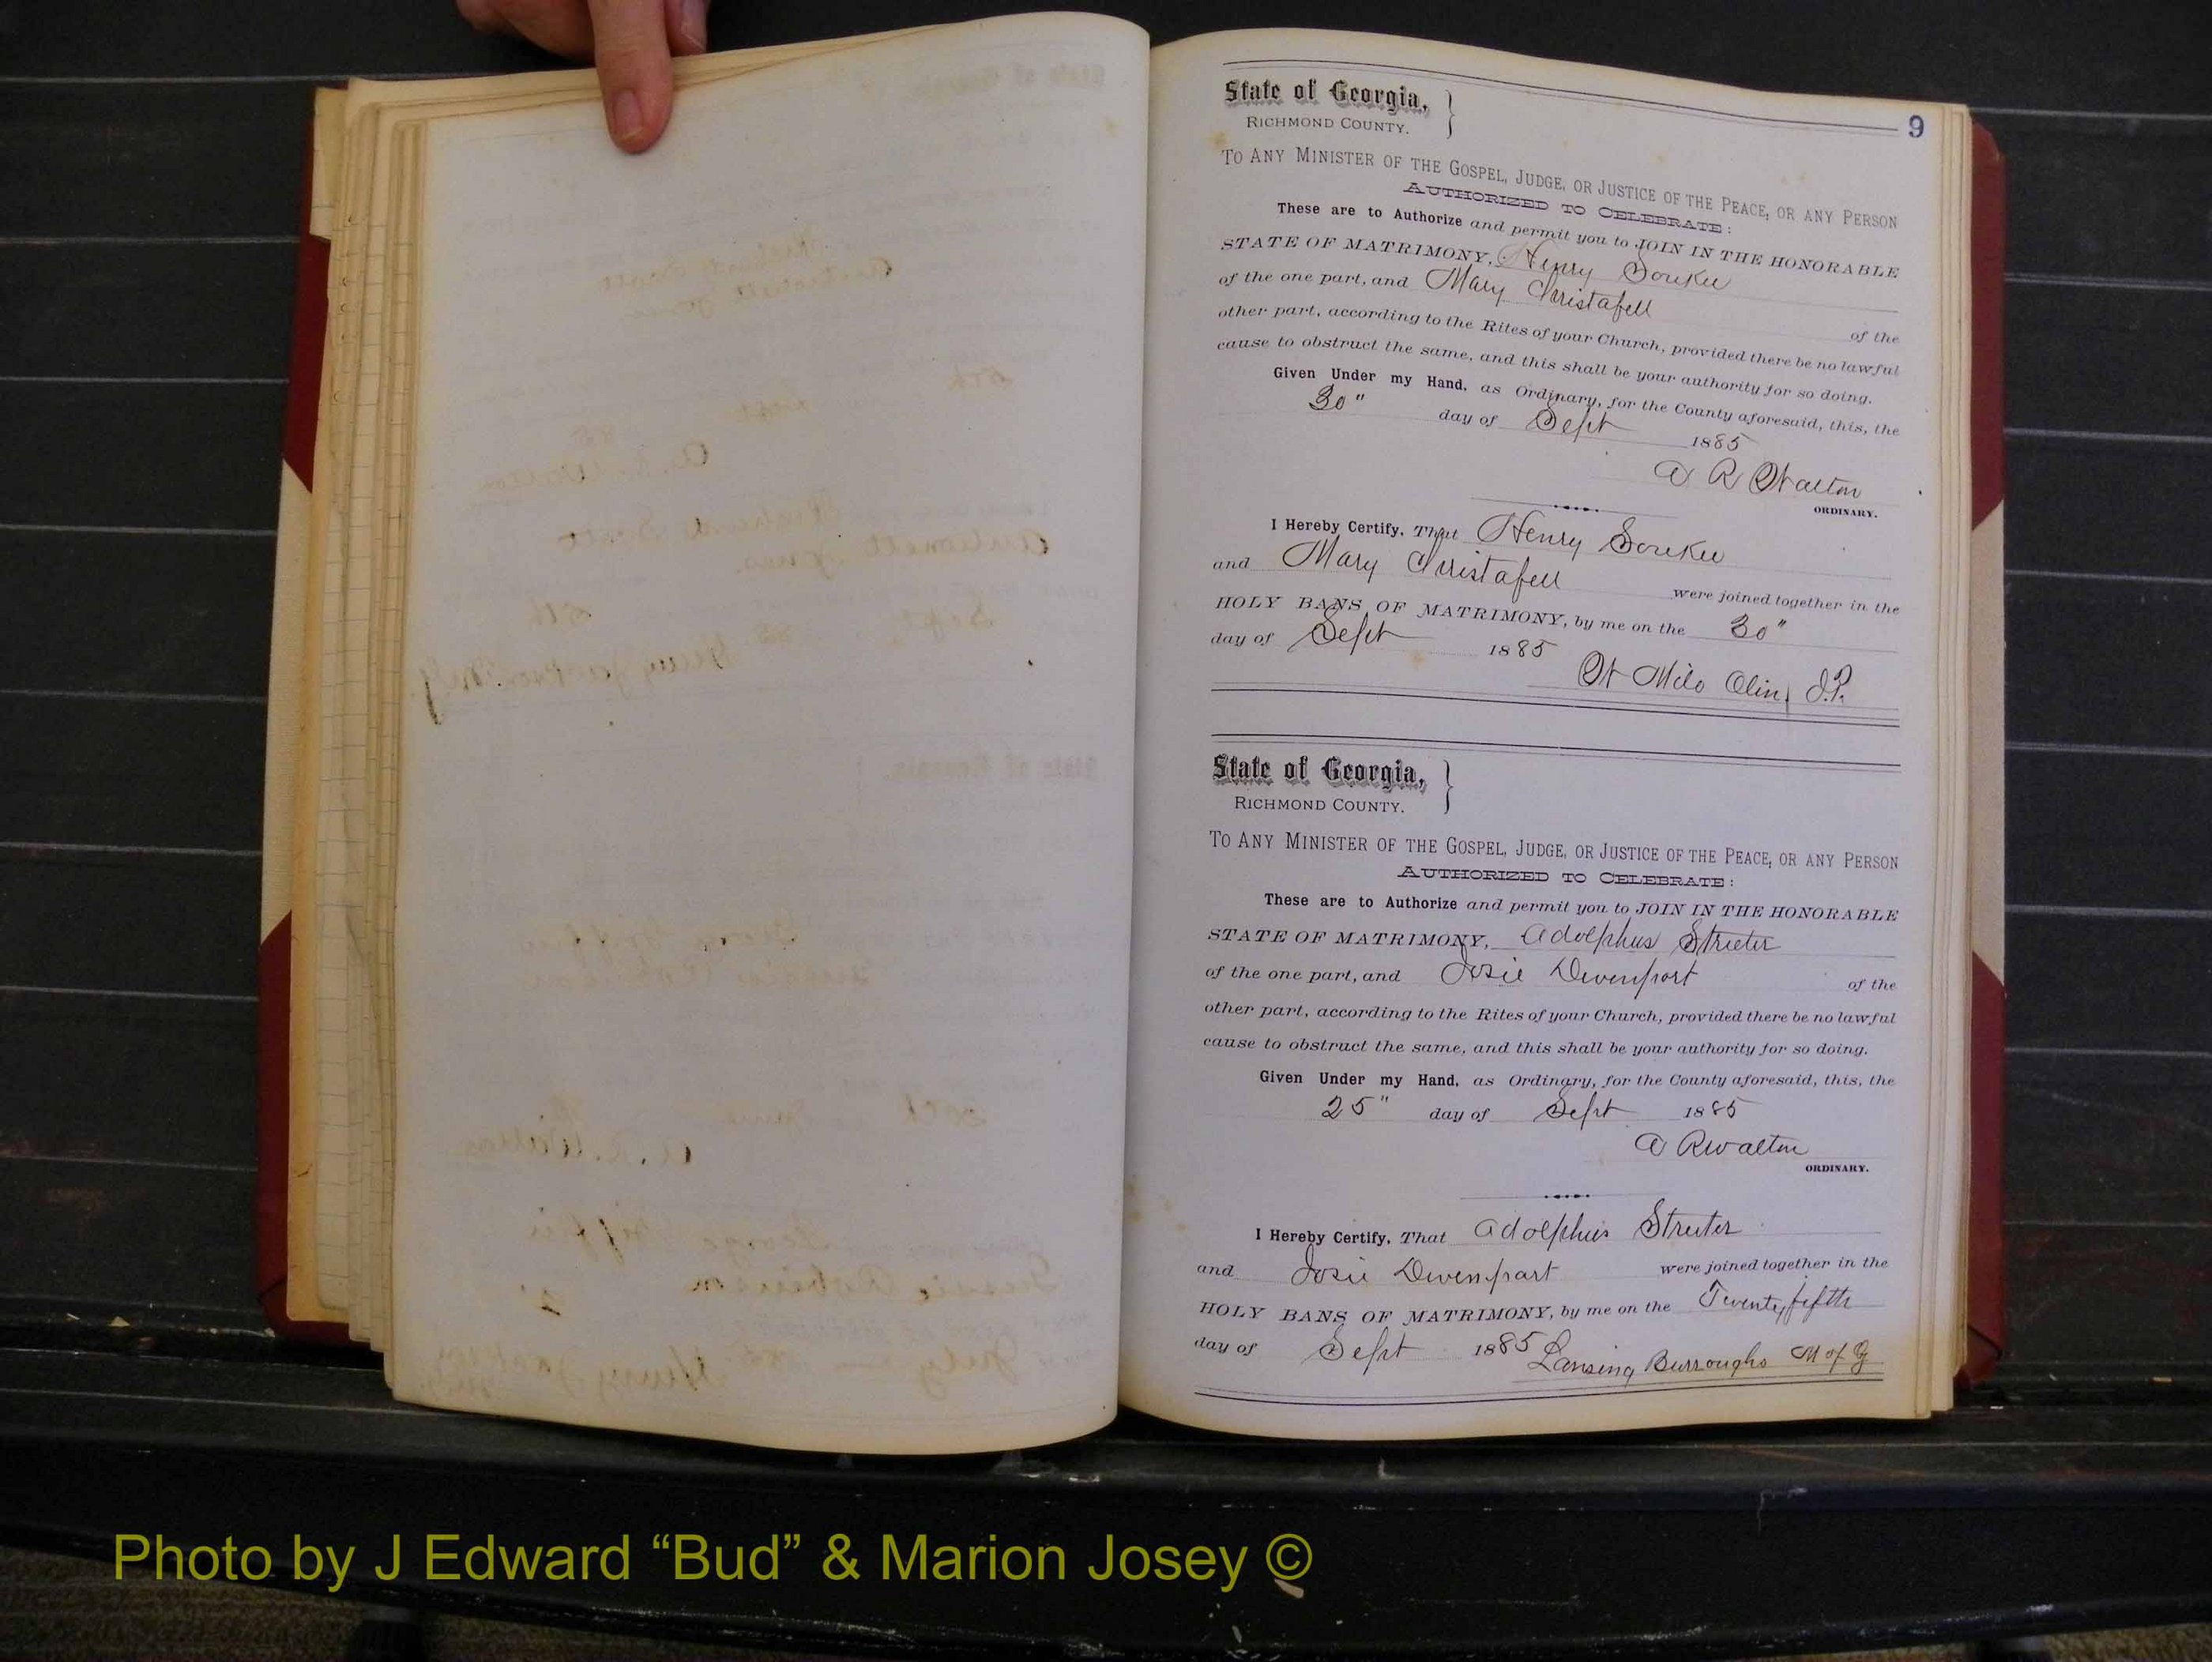 9
State of Georgia,
RICHMOND COUNTY.
TO ANY MINISTER OF THE GOSPEL, JUDGE, OR JUSTICE OF THE PEACE, OR ANY PERSON
AUTHORIZED TO CELEBRATE:
These are to Authorize and permit you to JOIN IN THE HONORABLE
STATE OF MATRIMONY, Henry
of the one part, and Mary Christafell of the
other part, according to the Rites of your Church, provided there be no lawful
cause to obstruct the same, and this shall be your authority for so doing.
Given Under my Hand, as Ordinary, for the County aforesaid, this, the
30" day of Sept 1885
A R Walton
ORDINARY.
I Hereby Certify, That Henry
and Mary Christafell were joined together in the
HOLY BANS OF MATRIMONY, by me on the 30"
day of Sept 1885
W Milo Olin, J.P.
State of Georgia,
RICHMOND COUNTY.
TO ANY MINISTER OF THE GOSPEL, JUDGE, OR JUSTICE OF THE PEACE, OR ANY PERSON
AUTHORIZED TO CELEBRATE:
These are to Authorize and permit you to JOIN IN THE HONORABLE
STATE OF MATRIMONY, Adolphus Streeter
of the one part, and Josie Devenport of the
other part, according to the Rites of your Church, provided there be no lawful
cause to obstruct the same, and this shall be your authority for so doing.
Given Under my Hand, as Ordinary, for the County aforesaid, this, the
25" day of Sept 1885
A R Walton
ORDINARY.
I Hereby Certify, That Adolphus Streeter
and Josie Devenport were joined together in the
HOLY BANS OF MATRIMONY, by me on the Twenty fifth
day of Sept 1885
Lansing Burroughs M of G
Photo by J Edward “Bud” & Marion Josey ©